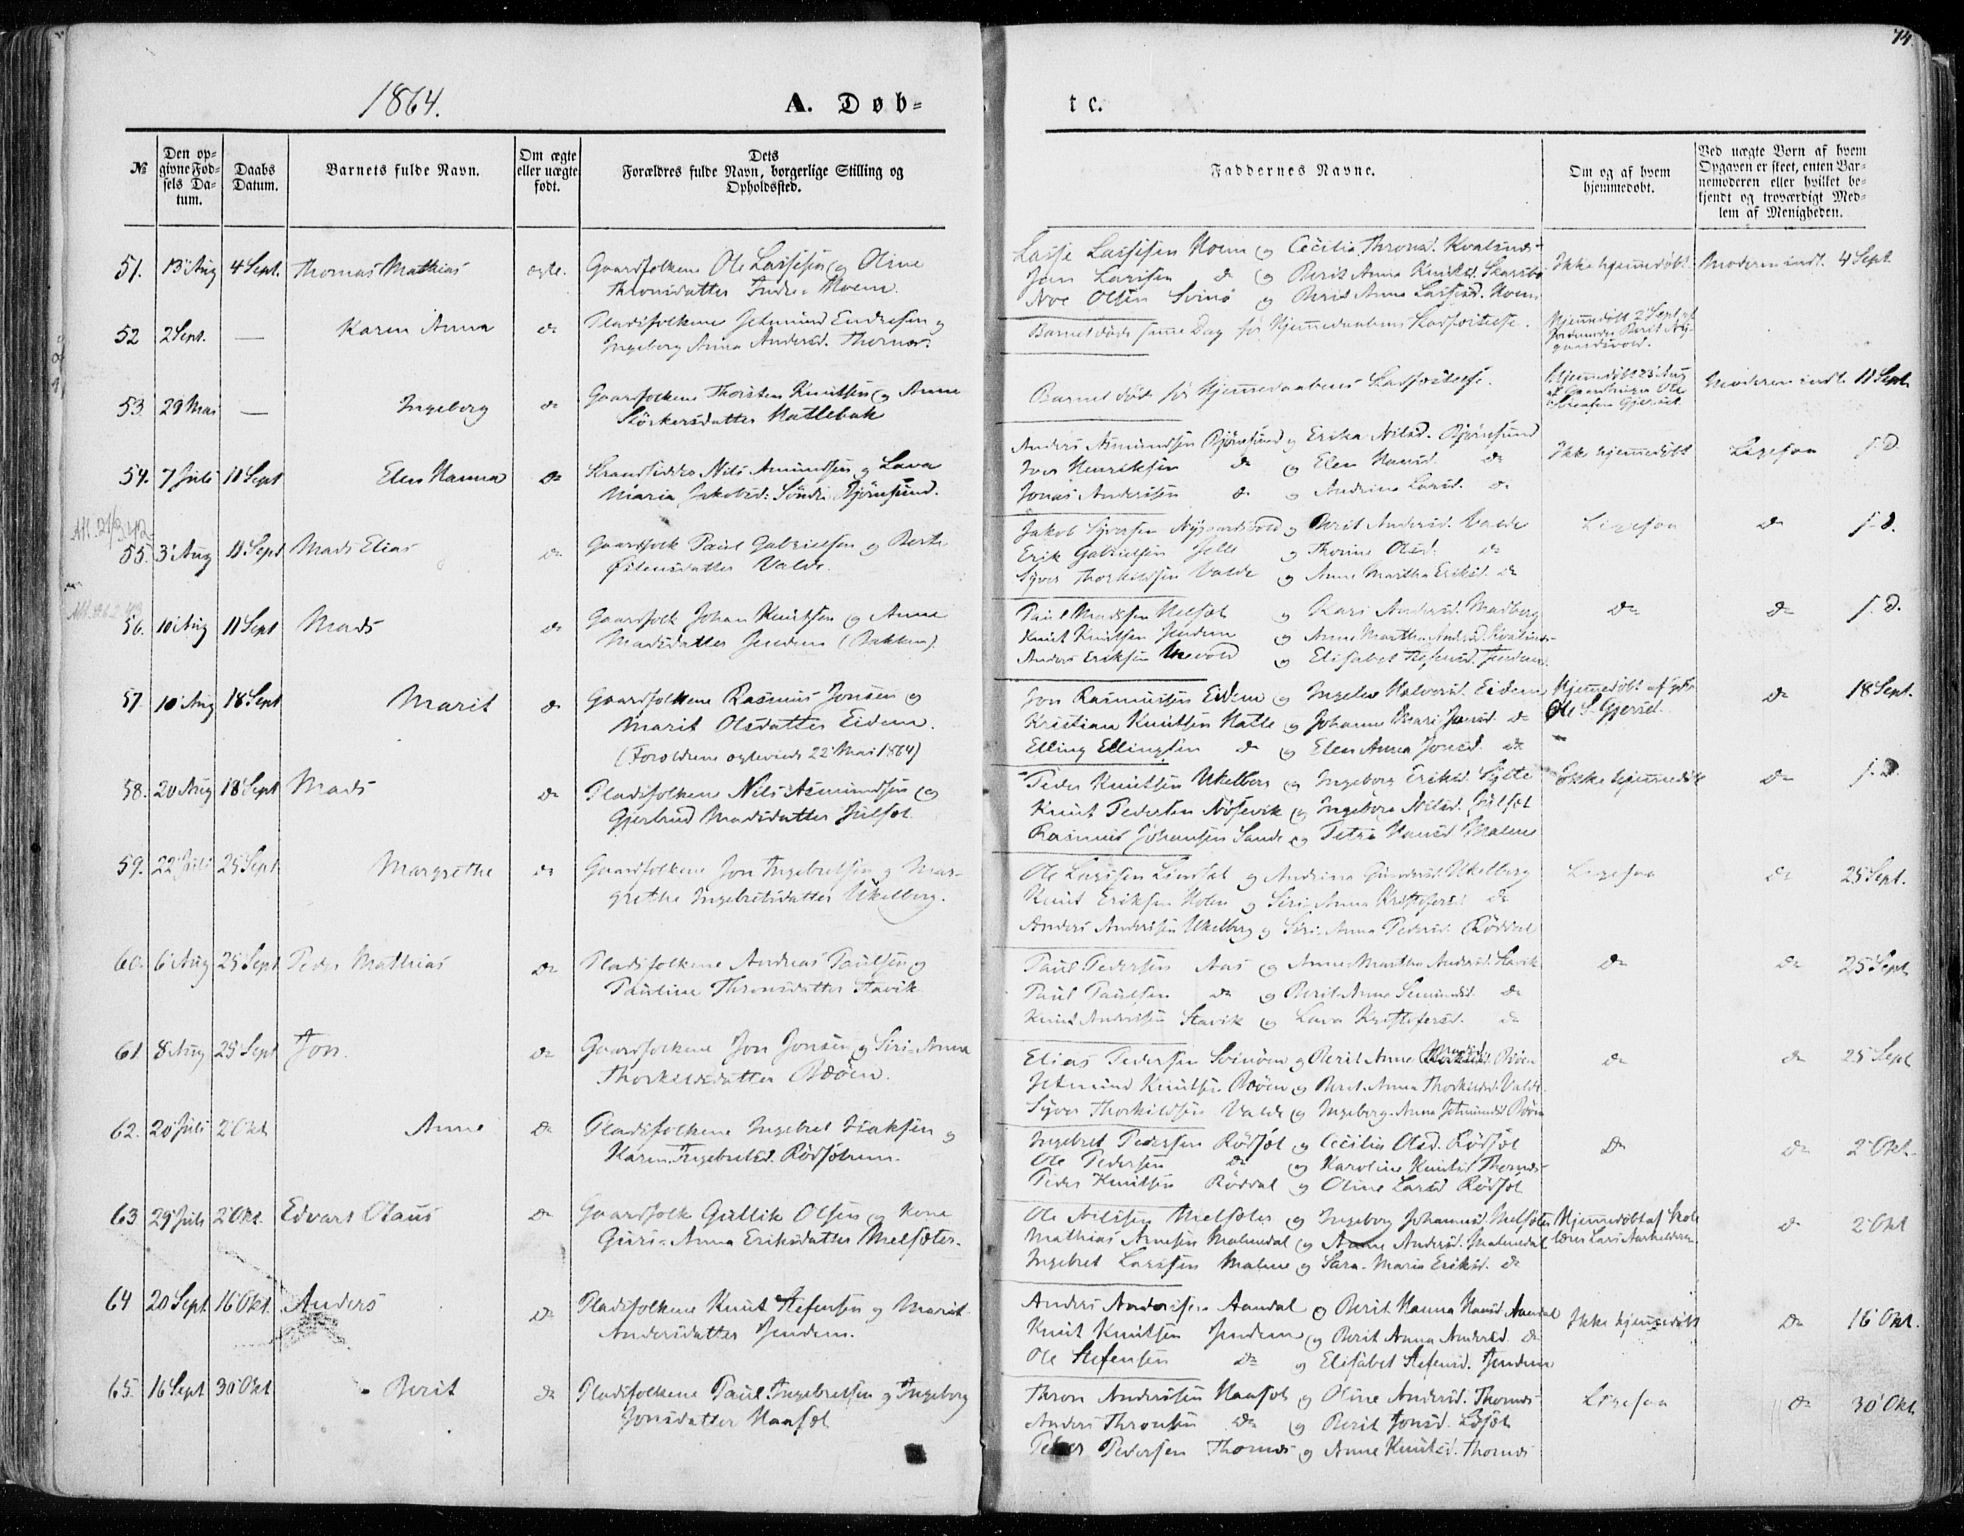 74
1864.
A. Døb-
te.
№
Den opgivne Fødsels Datum.
Daabs Datum.
Barnets fulde Navn.
Om ægte eller uægte født.
Dets Forældres fulde Navn, borgerlige Stilling og Opholdssted.
Faddernes Navne.
Om og af hvem hjemmedøbt.
Ved uægte Børn af hvem Opgaven er skeet, enten Barnemoderen eller hvilket bekjendt og troværdigt Medlem af Menigheden.
51. 13 Aug 4 Sept. Thomas Mathias ægte. Gaardfolkene Ole Lassesen og Oline
Thronsdatter Indre Moem.
Lasse Lassesen Moem og Cecilia Thronsd. Kvalsnes
Jon Larsen do og Berit Anna Knutsd. Skarsbø
Noe Olsen Svinø og Berit Anna Lassesd. Moem
Ikke hjemmedøbt Moderen indl. 4 Sept.
52 2 Sept. — Karen Anna do Pladsfolkene Jetmund Endresen og
Ingeborg Anna Andersd. Thornes.
Barnet døde samme Dag før Hjemmedaabens Stadfæstelse.
Hjemmedøbt 2 Sept af
Jordmoder Berit Nygaardsvold.
53. 29 Mai — Ingeborg do Gaardfolkene Thorsten Knutsen og Anne
Størkersdatter Hatlebak
Barnet døde før Hjemmedaabens Stadfæstelse.
Moderen indl. 11 Sept
54. 7 Juli 11 Sept Elen Hanna do Strandsidder Nils Amundsen og Lava
Maria Jakobsd. Søndre Bjørnsund.
Anders Asmundsen Bjørnsund og Erika Nilsd. Bjørnsund
Iver Henriksen do og Elen Hansd. do
Jonas Andersen do og Andrine Larsd. do
Ikke hjemmedøbt Ligesaa s. D.
55. 3 Aug 11 Sept Mads Elias do Gaardfolk Paul Gabrielsen og Berte
Østensdatter Valde.
Jakob Syversen Nygaardsvold og Berit Andersd. Valde
Erik Gabrielsen Julle og Thorine Olsd. do
Syver Thorkildsen Valde og Anne Martha Eriksd. do
Ligesaa do s. D.
56. 10 Aug 11 Sept Mads do Gaardfolk Johan Knutsen og Anne
Madsdatter Jendem (Bakken).
Paul Madsen Melsæt og Kari Andersd. Madberg
Knut Knutsen Jendem og Anne Martha Andersd.
Anders Eriksen og Elisabet Stefensd. Jendem
do do s. D.
57. 10 Aug 18 Sept Marit do Gaardfolkene Rasmus Jonsen og
Marit Olsdatter Eidem.
(Forældrene ægteviede 22 Mai 1864)
Jon Rasmussen Eidem og Ingeborg Halvorsd. Eidem
Kristian Knutsen Hatle og Johanne Mari Jonsd. do
Elling Ellingsen do og Elen Anna Jonsd. do
Hjemmedøbt af
Ole S. Gjersæt.
do 18 Sept.
58. 20 Aug 18 Sept Mads do Pladsfolkene Nils Asmundsen og
Gjertrud Madsdatter Julsæt.
Peder Knutsen Ukelberg og Ingeborg Eriksd. Sylte
Knut Pedersen Nøsevik og Ingeborg Nilsd. Julsæt
Rasmus Johansen Sande og Petra Hansd. Malme
Ikke hjemmedøbt do s. D.
59. 22 Juli 25 Sept Margrethe do Gaardfolkene Jon Ingebretsen og Margrethe
Ingebretsdatter Ukelberg.
Ole Larsen Lindset og Andrina Ukelberg
Knut Eriksen Holen og Siri Anna Kristofersd. do
Anders Andersen Ukelberg og Siri Anna Pedersd. Røddal
Ligesaa do 25 Sept.
60. 6 Aug 25 Sept Peder Mathias do Pladsfolkene Andreas Paulsen og
Pauline Thronsdatter Stavik
Paul Pedersen Aas og Anne Martha Andersd. Stavik
Paul Paulsen do og Berit Anna do
Knut Andersen Stavik og Lava Kristofersd. do
do do 25 Sept
61 8 Aug 25 Sept Jon. do Gaardfolkene Jon Jonsen og Siri Anna
Thorkildsdatter Bøen.
Elias Pedersen Svinøen og Berit Anne Bøen
Jetmund Knutsen Bøen og Berit Anna Thorkildsd. Valde
Syver Thorkildsen Valde og Ingeborg Anna Jetmundsd. Bøen
do do 25 Sept
62. 20 Juli 2 Okt Anne do Pladsfolkene Ingebret Isaksen og
Karen Ingebretsd. Rødsætrem.
Ingebret Pedersen Rødsæt og Cecilia Olsd. Rødsæt
Ole Pedersen do og Karoline Knutsd. Thornes
Peder Knutsen Røddal og Oline Larsd Rødsæt
do do 2 Okt.
63 29 Juli 2 Okt. Edvart Olaus do Gaardfolk Gullik Olsen og Kone
Guri Anna Eriksdatter Melsæter.
Ole Nilssen Melsæter og Ingeborg Johannesd. Melsæter
Mathias Arnesen Malmedal og Anne Andersd. Malmedal
Ingebret Larssen Malme og Sara Maria Eriksd. do
Hjemmedøbt af Skolelærer Lars
do 2 Okt
64 20 Sept 16 Okt. Anders do Pladsfolkene Knut Stefensen og Marit
Andersdatter Jendem.
Anders Andersen Aandal og Berit Hanna Hansd. Aandal
Knut Knutsen Jendem og Berit Anna Andersd. do
Ole Stefensen do og Elisabet Stefensd. Jendem
Ikke hjemmedøbt do 16 Okt.
65. 16 Sept 30 Okt Berit do Pladsfolkene Paul Ingebretsen og Ingeborg
Jonsdatter Haasæt
Thron Andersen Haasæt og Oline Andersd. Thornes
Anders Thronsen do og Berit Jonsd. Løset
Peder Pedersen Thornes og Anne Knutsd. Thornes
Ligesaa do 30 Okt